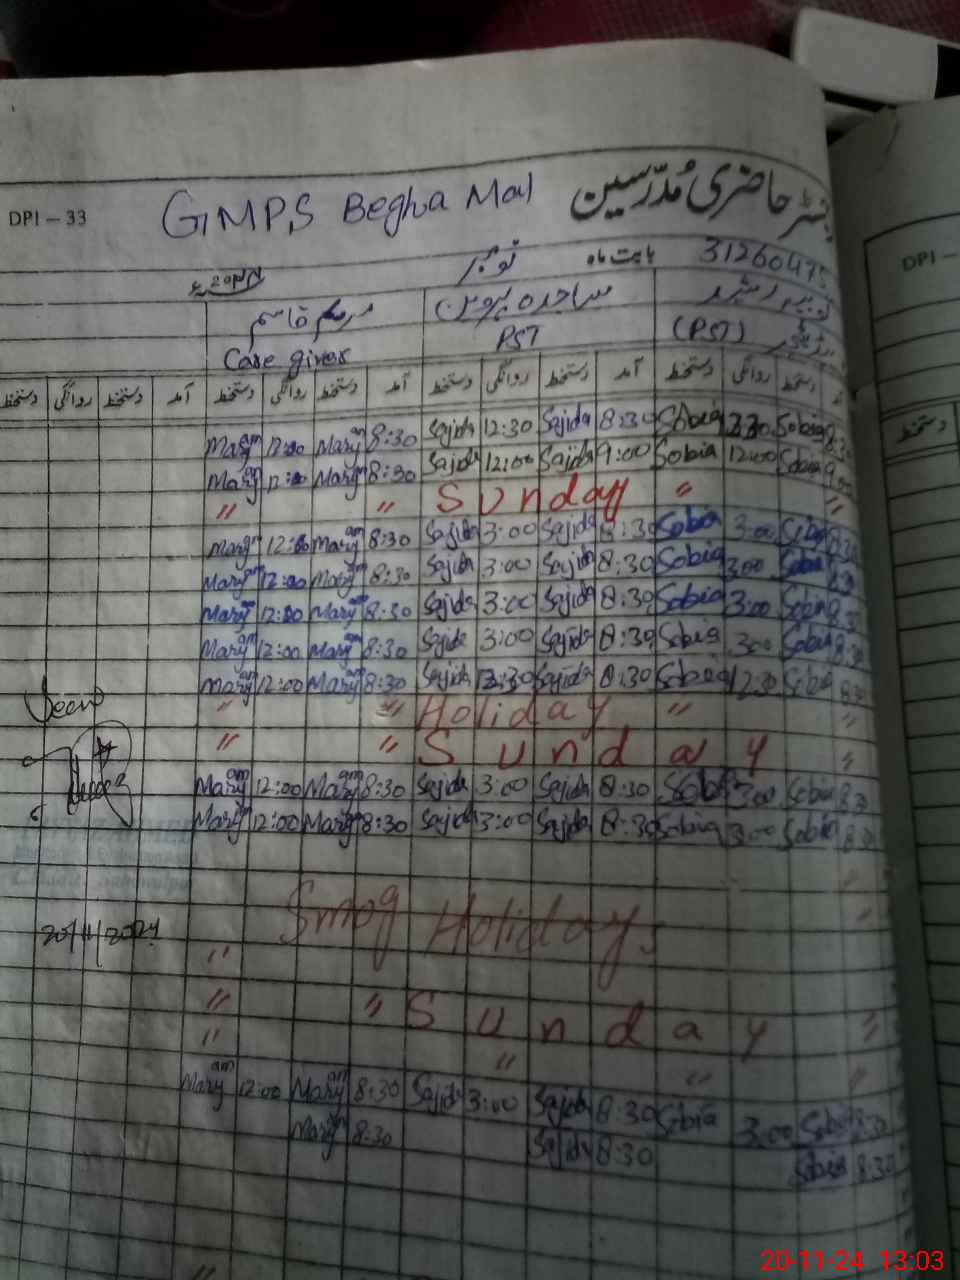 DPI – 33 GMPS Begha Mal رجسٹر حاضری مُدرّسین
DPI –
2024ء نومبر بابت ماہ
مریم قاسم ساجدہ پروین
Care giver PST (PST)
دستخط روانگی دستخط آمد دستخط روانگی دستخط آمد دستخط روانگی دستخط آمد دستخط روانگی دستخط
دستخط
Maryam 12:00 Maryam 8:30 Sajida 12:30 Sajida 8:30 Sobia 12:30 Sobia 8:30
Maryam 12:00 Maryam 8:30 Sajida 12:00 Sajida 9:00 Sobia 12:00 Sobia 9:00
" " Sunday "
Maryam 12:00 Maryam 8:30 Sajida 3:00 Sajida 8:30 Sobia 3:00 Sobia 8:30
Maryam 12:00 Maryam 8:30 Sajida 3:00 Sajida 8:30 Sobia 3:00 Sobia 8:30
Maryam 12:00 Maryam 8:30 Sajida 3:00 Sajida 8:30 Sobia 3:00 Sobia 8:30
Maryam 12:00 Maryam 8:30 Sajida 3:00 Sajida 8:30 Sobia 3:00 Sobia 8:30
Maryam 12:00 Maryam 8:30 Sajida 12:30 Sajida 8:30 Sobia 12:30 Sobia 8:30
Seen
" " Holiday " "
" " Sunday "
Maryam 12:00 Maryam 8:30 Sajida 3:00 Sajida 8:30 Sobia 3:00 Sobia 8:30
Maryam 12:00 Maryam 8:30 Sajida 3:00 Sajida 8:30 Sobia 3:00 Sobia 8:30
Smog Holidays
20/11/2024
" " Sunday "
Maryam 12:00 Maryam 8:30 Sajida 3:00 Sajida 8:30 Sobia 3:00 Sobia 8:30
Maryam 8:30 Sajida 8:30 Sobia 8:30
20-11-24 13:03